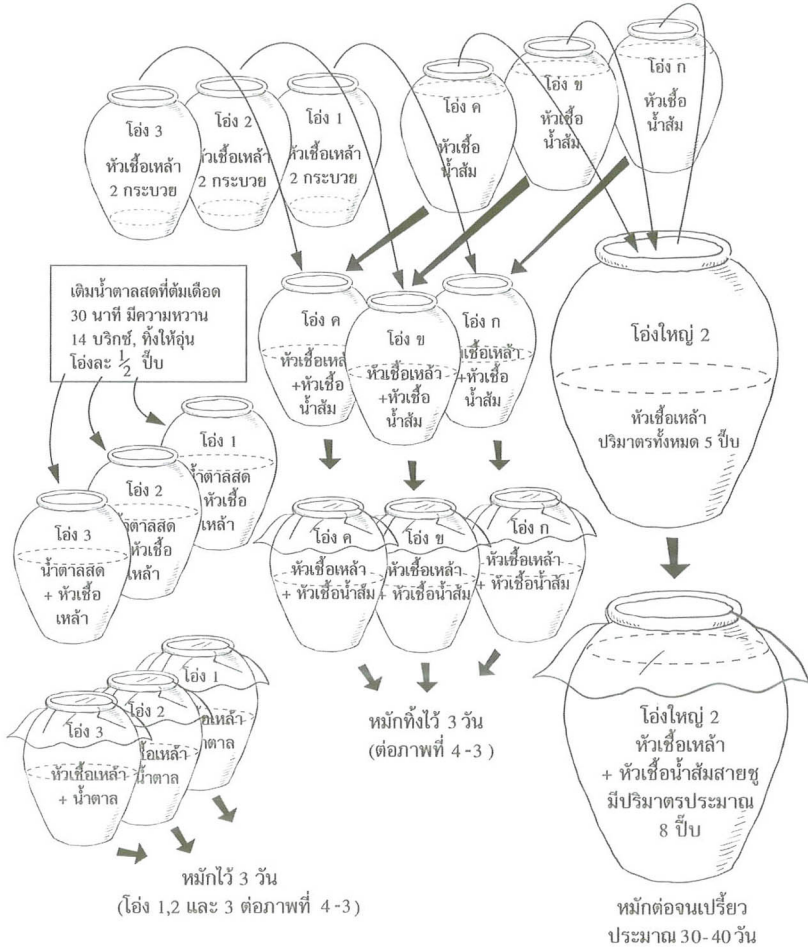 โอ่ง 3
หัวเชื้อเหล้า
2 กระบวย
โอ่ง 2
หัวเชื้อเหล้า
2 กระบวย
โอ่ง 1
หัวเชื้อเหล้า
2 กระบวย
โอ่ง ค
หัวเชื้อ
น้ำส้ม
โอ่ง ข
หัวเชื้อ
น้ำส้ม
โอ่ง ก
หัวเชื้อ
น้ำส้ม
เติมน้ำตาลสดที่ต้มเดือด
30 นาที มีความหวาน
14 บริกซ์, ทิ้งให้อุ่น
โอ่งละ ½ ปี๊บ
โอ่ง ค
หัวเชื้อเหล้า
+หัวเชื้อ
น้ำส้ม
โอ่ง ข
หัวเชื้อเหล้ว
+หัวเชื้อ
น้ำส้ม
โอ่ง ก
เชื้อเหล้า
+หัวเชื้อ
น้ำส้ม
โอ่งใหญ่ 2
หัวเชื้อเหล้า
ปริมาตรทั้งหมด 5 ปี๊บ
โอ่ง 1
น้ำตาลสด
หัวเชื้อ
เหล้า
โอ่ง 2
น้ำตาลสด
หัวเชื้อ
เหล้า
โอ่ง 3
น้ำตาลสด
+ หัวเชื้อ
เหล้า
โอ่ง ค
หัวเชื้อเหล้า
+ หัวเชื้อน้ำส้ม
โอ่ง ข
หัวเชื้อเหล้า
+ หัวเชื้อน้ำส้ม
โอ่ง ก
หัวเชื้อเหล้า
+ หัวเชื้อน้ำส้ม
หมักทิ้งไว้ 3 วัน
(ต่อภาพที่ 4-3 )
โอ่ง 1
เหล้า
ตาล
โอ่ง 2
เชื้อเหล้า
น้ำตาล
โอ่ง 3
หัวเชื้อเหล้า
+ น้ำตาล
หมักไว้ 3 วัน
(โอ่ง 1,2 และ 3 ต่อภาพที่ 4-3 )
โอ่งใหญ่ 2
หัวเชื้อเหล้า
+ หัวเชื้อน้ำส้มสายชู
มีปริมาตรประมาณ
8 ปี๊บ
หมักต่อจนเปรี้ยว
ประมาณ 30-40 วัน